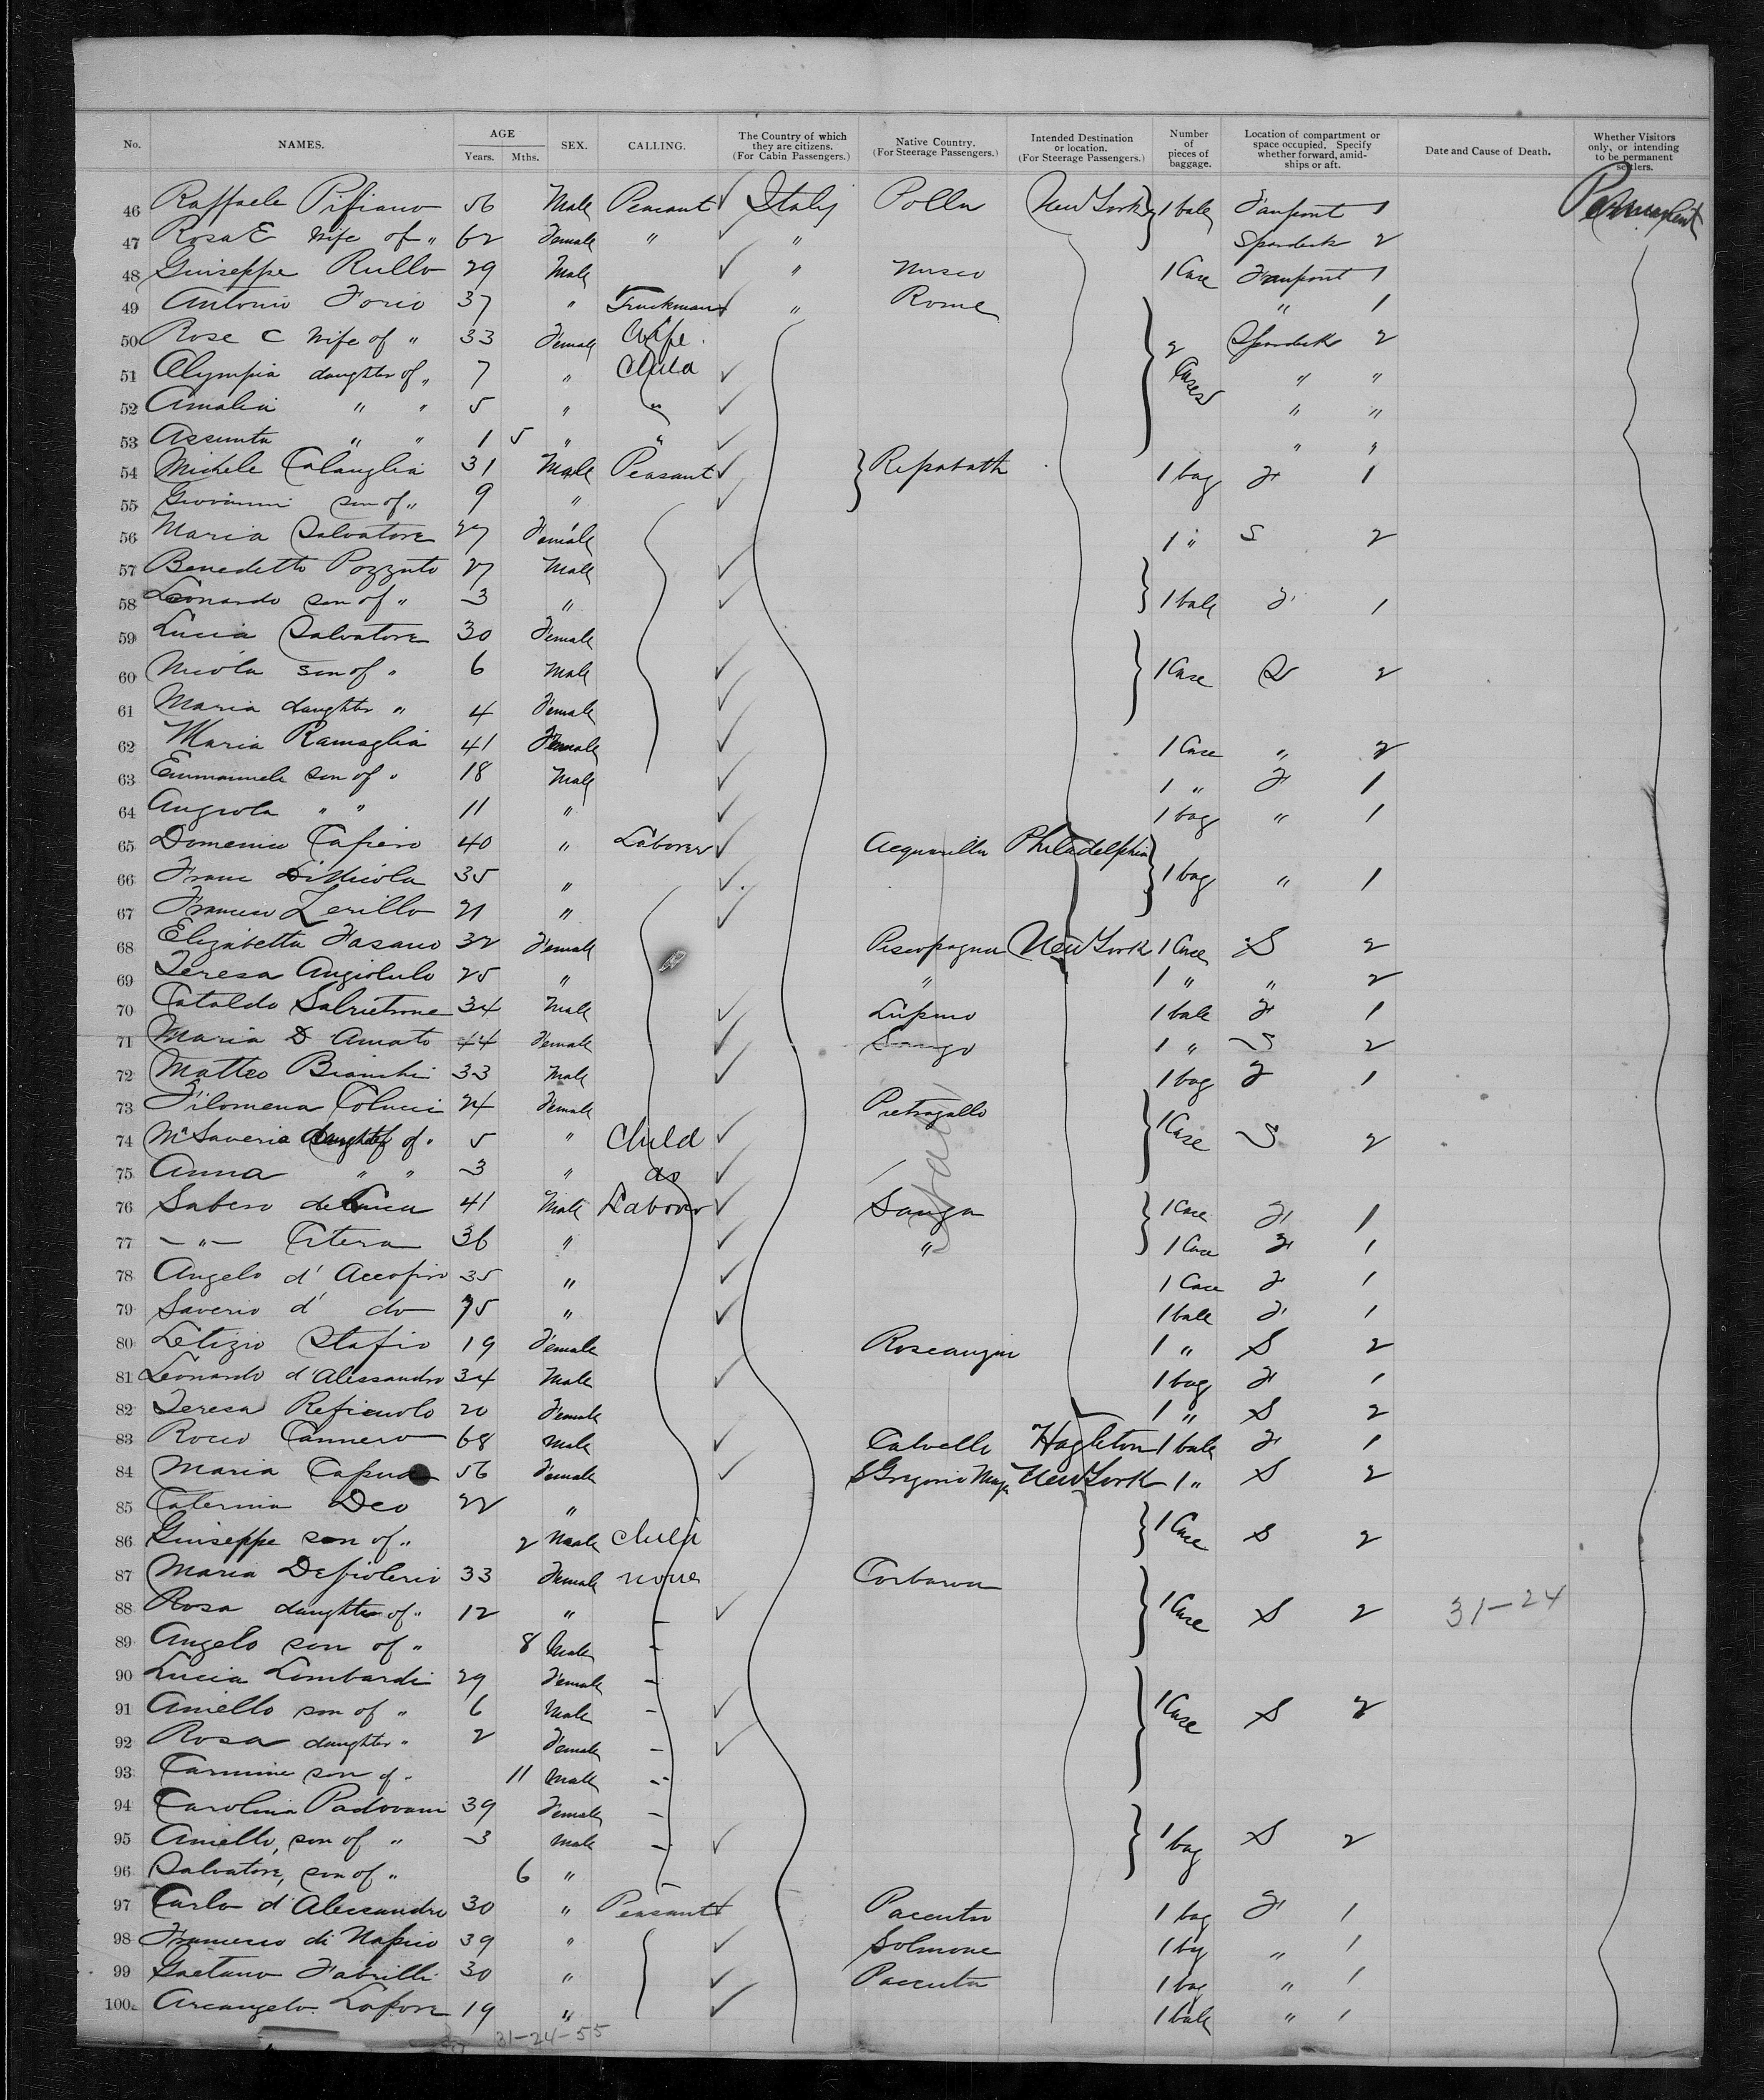 No. NAMES. AGE Years. Mths. SEX. CALLING. The Country of which they are citizens. (For Cabin Passengers.) Native Country. (For Steerage Passengers.) Intended Destination or location. (For Steerage Passengers.) Number of pieces of baggage. Location of compartment or space occupied. Specify whether forward, amidships or aft. Date and Cause of Death. Whether Visitors only, or intending to be permanent settlers.
46 Raffaele Pifiano 56 Male Peasant Italy Polla New York 1 bale 1 Permanent
47 Rosa E wife of " 62 Female " " Spardeck 2
48 Giuseppe Rullo 29 Male " Nusco 1 Case 1
49 Antonio Forio 37 " Truckman " Rome " 1
50 Rose C wife of " 33 Female Wife 2 Cases Spardeck 2
51 Olympia daughter of " 7 " Child " "
52 Amalia " " 5 " " " "
53 Assunta " " 1 5 " " " "
54 Michele Calanglia 31 Male Peasant 1 bag F 1
55 Giovanni son of " 9 "
56 Maria Salvatore 27 Female 1 " S 2
57 Benedetto Pozzuto 27 Male
58 Leonardo son of " 3 " 1 bale F 1
59 Lucia Salvatore 30 Female
60 Nicola son of " 6 Male 1 Case S 2
61 Maria daughter " 4 Female
62 Maria Ramaglia 41 Female 1 Case " 2
63 Emmanuele son of " 18 Male 1 " F 1
64 Angiola " " 11 " 1 bag " 1
65 Domenico Capiero 40 " Laborer Acquarilla Philadelphia
66 Franc DiNicola 35 " 1 bag " 1
67 Francesco Zerillo 21 "
68 Elizabetta Fasano 32 Female Pescopagna New York 1 Case S 2
69 Teresa Angiolulo 25 " " 1 " " 2
70 Cataldo Salvietrone 34 Male 1 bale F 1
71 Maria D Amato 44 Female 1 " S 2
72 Matteo Bianchi 33 Male 1 bag F 1
73 Filomena Colucci 24 Female Pietragallo
74 Ma Saveria daughter of " 5 " Child 1 Case S 2
75 Anna " " 3 " do
76 Sabero deLuca 41 Male Laborer Sanza 1 Case F 1
77 — " — Citera 36 " " 1 Case F 1
78 Angelo d' 35 " 1 Case F 1
79 Saverio d' do " 1 bale F 1
80 Letizio Stafio 19 Female 1 " S 2
81 Leonardo d'Alessandro 34 Male 1 bag F 1
82 Teresa 20 Female 1 " S 2
83 Rocco Cannero 68 Male Calvelle Hazleton 1 bale F 1
84 Maria Capua 56 Female S Gregorio Mag New York 1 " S 2
85 Caterina Deo 22 "
86 Giuseppe son of " 2 Male child 1 Case S 2
87 Maria Defiolerio 33 Female none Corbara
88 Rosa daughter of " 12 " 1 Case S 2 31-24
89 Angelo son of " 8 Male
90 Lucia Lombardi 29 Female
91 Aniello son of " 6 Male 1 Case S 2
92 Rosa daughter " 2 Female
93 Carmine son of " 11 Male
94 Carolina Padovani 39 Female
95 Aniello, son of " 3 Male 1 bag S 2
96 Salvatore, son of " 6 "
97 Carlo d'Alessandro 30 " Peasant Pacentro 1 bag F 1
98 Francesco di Napio 39 " Solmone 1 bag " 1
99 Gaetano Fabrilli 30 " Pacentro 1 bag " 1
100 Arcangelo Lafore 19 " 1 bale " 1
31-24-55